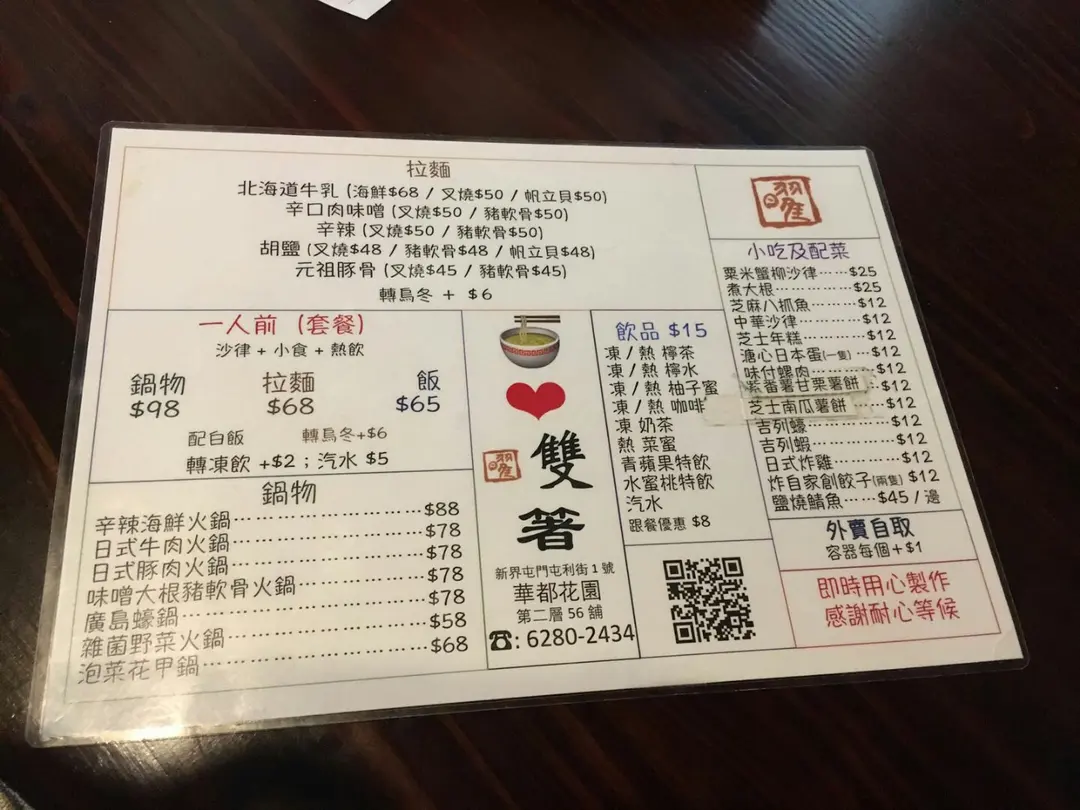 拉麵
北海道牛乳 (海鮮$68 / 叉燒$50 / 帆立貝$50)
辛口肉味噌 (叉燒$50 / 豬軟骨$50)
辛辣 (叉燒$50 / 豬軟骨$50)
胡鹽 (叉燒$48 / 豬軟骨$48 / 帆立貝$48)
元祖豚骨 (叉燒$45 / 豬軟骨$45)
轉烏冬 + $6
一人前 (套餐)
沙律 + 小食 + 熱飲
鍋物 拉麵 飯
$98 $68 $65
配白飯 轉烏冬+$6
轉凍飲 +$2 ; 汽水 $5
鍋物
辛辣海鮮火鍋………………………$88
日式牛肉火鍋………………………$78
日式豚肉火鍋………………………$78
味噌大根豬軟骨火鍋………………$78
廣島蠔鍋……………………………$78
雜菌野菜火鍋………………………$58
泡菜花甲鍋…………………………$68
曜
雙
箸
新界屯門屯利街1號
華都花園
第二層 56 舖
☎: 6280-2434
飲品 $15
凍 / 熱 檸茶
凍 / 熱 檸水
凍 / 熱 柚子蜜
凍 / 熱 咖啡
凍 奶茶
熱 菜蜜
青蘋果特飲
水蜜桃特飲
汽水
跟餐優惠 $8
曜
小吃及配菜
粟米蟹柳沙律……$25
煮大根……………$25
芝麻八抓魚………$12
中華沙律…………$12
芝士年糕…………$12
溏心日本蛋(一隻)…$12
味付螺肉…………$12
紫番薯甘栗薯餅…$12
芝士南瓜薯餅……$12
吉列蠔……………$12
吉列蝦……………$12
日式炸雞…………$12
炸自家創餃子(兩隻) $12
鹽燒鯖魚…$45 / 邊
外賣自取
容器每個+$1
即時用心製作
感謝耐心等候